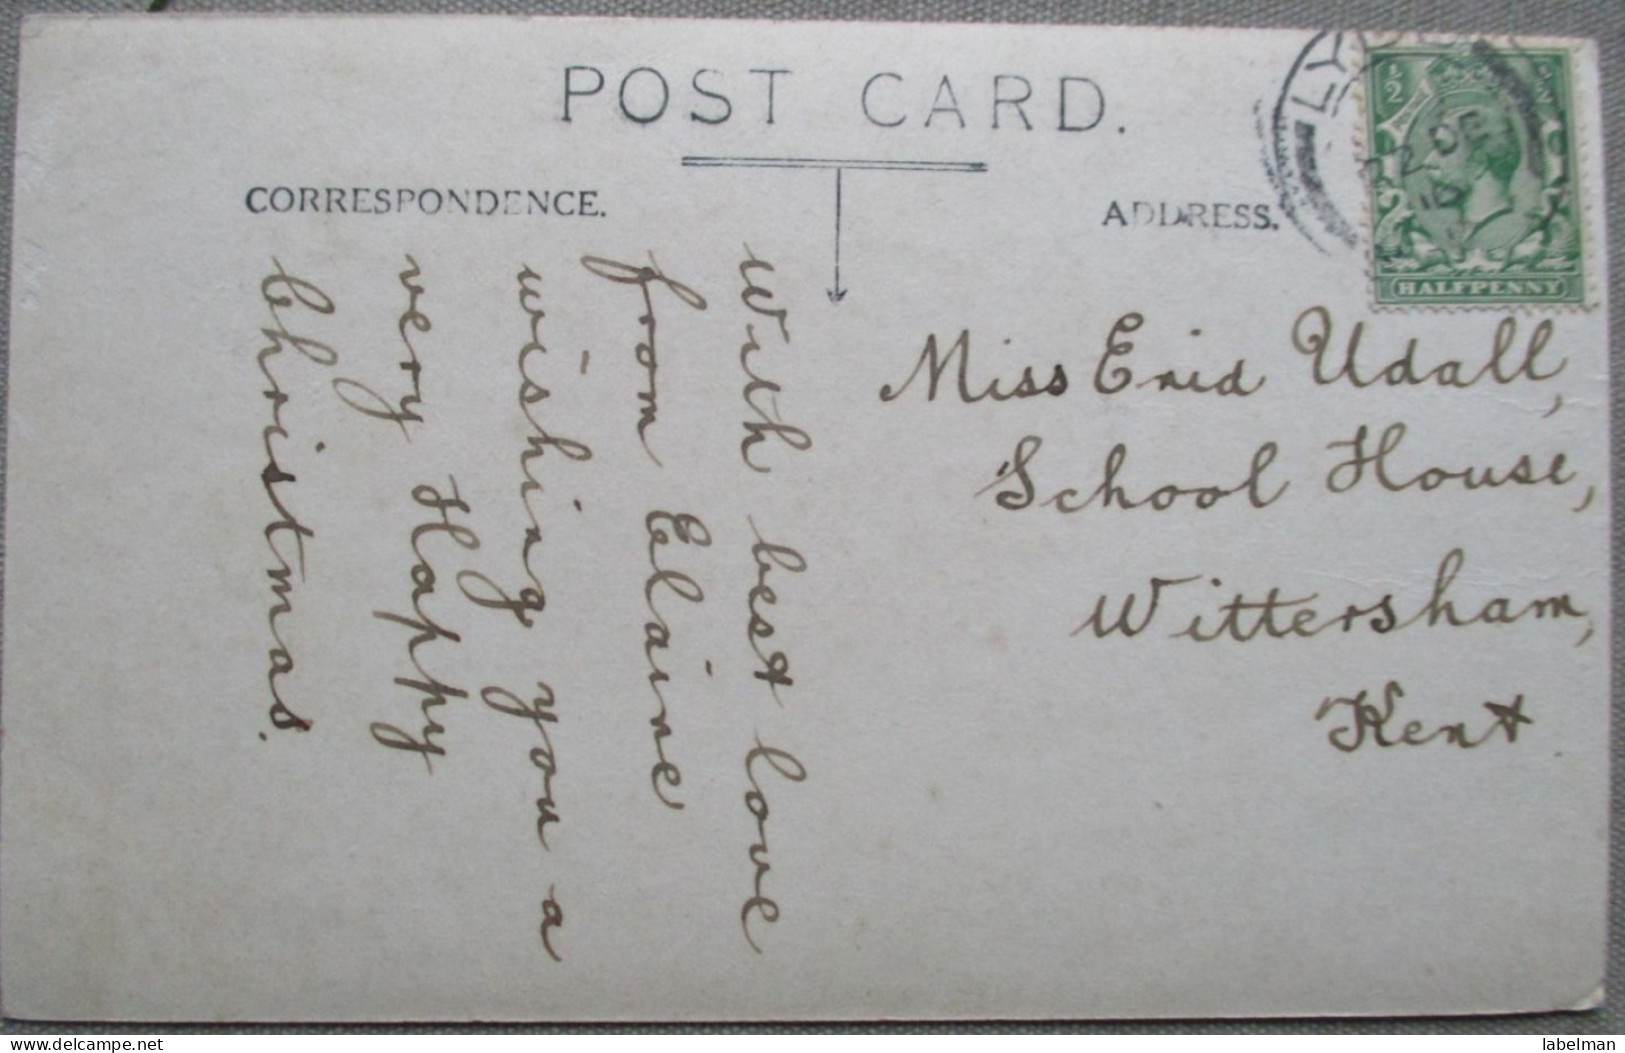 POST CARD.
CORRESPONDENCE.
ADDRESS.
With best love
from Elaine
wishing you a
very Happy
Christmas.
Miss Enid Udall,
School House,
Wittersham,
Kent
½
HALFPENNY
LY
22 DE
https://www.delcampe.net
labelman